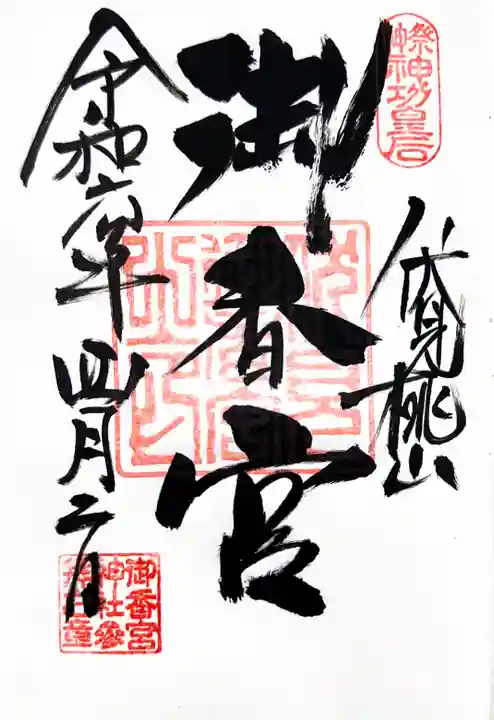 祭神神功皇后
伏見桃山
御香宮
令和六年
四月二日
御香宮
神社參
拜之章